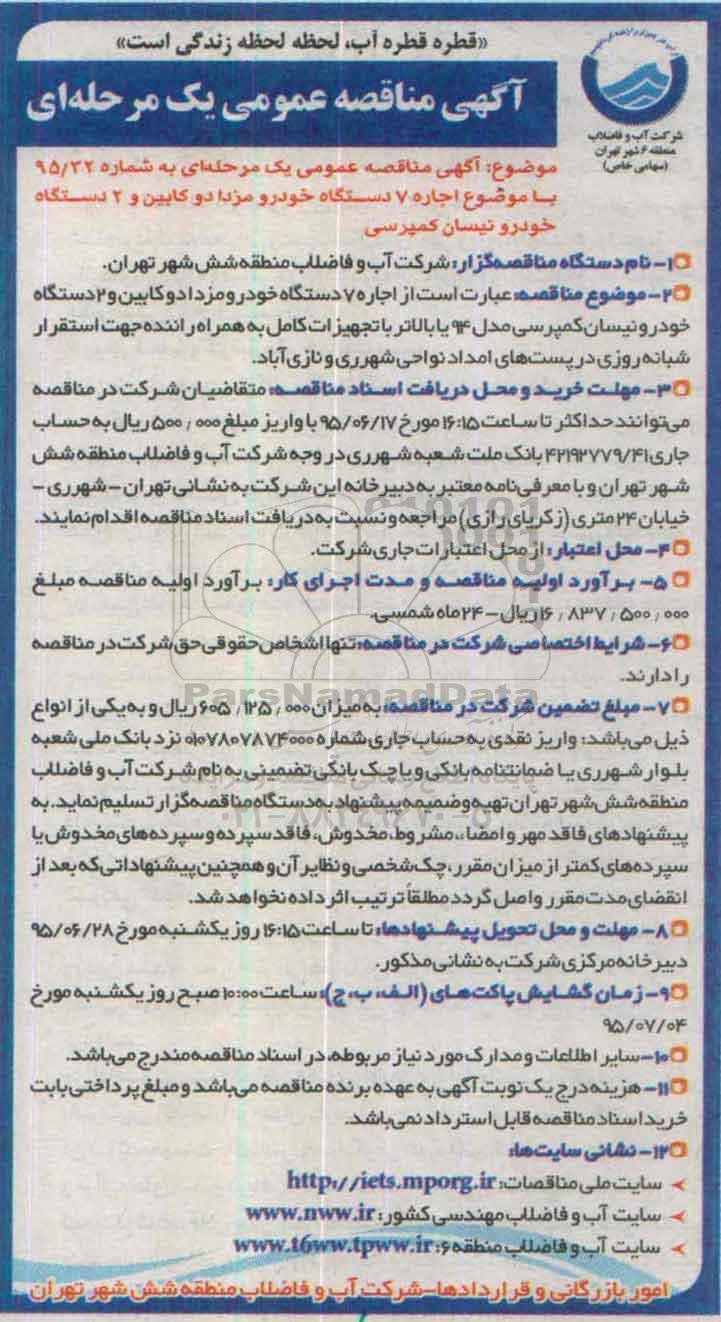 «قطره قطره آب، لحظه لحظه زندگی است»
آگهی مناقصه عمومی یک مرحله‌ای
شرکت آب و فاضلاب
منطقه ۶ شهر تهران
(سهامی خاص)
موضوع: آگهی مناقصه عمومی یک مرحله‌ای به شماره ۹۵/۳۲
با موضوع اجاره ۷ دستگاه خودرو مزدا دو کابین و ۲ دستگاه
خودرو نیسان کمپرسی
۱- نام دستگاه مناقصه‌گزار: شرکت آب و فاضلاب منطقه شش شهر تهران.
۲- موضوع مناقصه: عبارت است از اجاره ۷ دستگاه خودرو مزدا دو کابین و ۲ دستگاه
خودرو نیسان کمپرسی مدل ۹۴ یا بالاتر با تجهیزات کامل به همراه راننده جهت استقرار
شبانه روزی در پست‌های امداد نواحی شهرری و نازی‌آباد.
۳- مهلت خرید و محل دریافت اسناد مناقصه: متقاضیان شرکت در مناقصه
می‌توانند حداکثر تا ساعت ۱۶:۱۵ مورخ ۹۵/۰۶/۱۷ با واریز مبلغ ۵۰۰٫۰۰۰ ریال به حساب
جاری ۴۲۱۹۲۷۷۹/۴۱ بانک ملت شعبه شهرری در وجه شرکت آب و فاضلاب منطقه شش
شهر تهران و با معرفی‌نامه معتبر به دبیرخانه این شرکت به نشانی تهران - شهرری -
خیابان ۲۴ متری (زکریای رازی) مراجعه و نسبت به دریافت اسناد مناقصه اقدام نمایند.
۴- محل اعتبار: از محل اعتبارات جاری شرکت.
۵- برآورد اولیه مناقصه و مدت اجرای کار: برآورد اولیه مناقصه مبلغ
۱۶٫۸۳۷٫۵۰۰٫۰۰۰ ریال - ۲۴ ماه شمسی.
۶- شرایط اختصاصی شرکت در مناقصه: تنها اشخاص حقوقی حق شرکت در مناقصه
را دارند.
ParsNamadData
۷- مبلغ تضمین شرکت در مناقصه: به میزان ۶۰۵٫۱۲۵٫۰۰۰ ریال و به یکی از انواع
ذیل می‌باشد: واریز نقدی به حساب جاری شماره ۰۱۰۷۸۰۷۸۷۴۰۰۰ نزد بانک ملی شعبه
بلوار شهرری یا ضمانتنامه بانکی و یا چک بانکی تضمینی به نام شرکت آب و فاضلاب
منطقه شش شهر تهران تهیه و ضمیمه پیشنهاد به دستگاه مناقصه‌گزار تسلیم نماید. به
پیشنهادهای فاقد مهر و امضاء، مشروط، مخدوش، فاقد سپرده و سپرده‌های مخدوش یا
سپرده‌های کمتر از میزان مقرر، چک شخصی و نظایر آن و همچنین پیشنهاداتی که بعد از
انقضای مدت مقرر واصل گردد مطلقاً ترتیب اثر داده نخواهد شد.
۸- مهلت و محل تحویل پیشنهادها: تا ساعت ۱۶:۱۵ روز یکشنبه مورخ ۹۵/۰۶/۲۸
دبیرخانه مرکزی شرکت به نشانی مذکور.
۹- زمان گشایش پاکت‌های (الف، ب، ج): ساعت ۱۰:۰۰ صبح روز یکشنبه مورخ
۹۵/۰۷/۰۴
۱۰- سایر اطلاعات و مدارک مورد نیاز مربوطه، در اسناد مناقصه مندرج می‌باشد.
۱۱- هزینه درج یک نوبت آگهی به عهده برنده مناقصه می‌باشد و مبلغ پرداختی بابت
خرید اسناد مناقصه قابل استرداد نمی‌باشد.
۱۲- نشانی سایت‌ها:
سایت ملی مناقصات: http://iets.mporg.ir
سایت آب و فاضلاب مهندسی کشور: www.nww.ir
سایت آب و فاضلاب منطقه ۶: www.t6ww.tpww.ir
امور بازرگانی و قراردادها-شرکت آب و فاضلاب منطقه شش شهر تهران